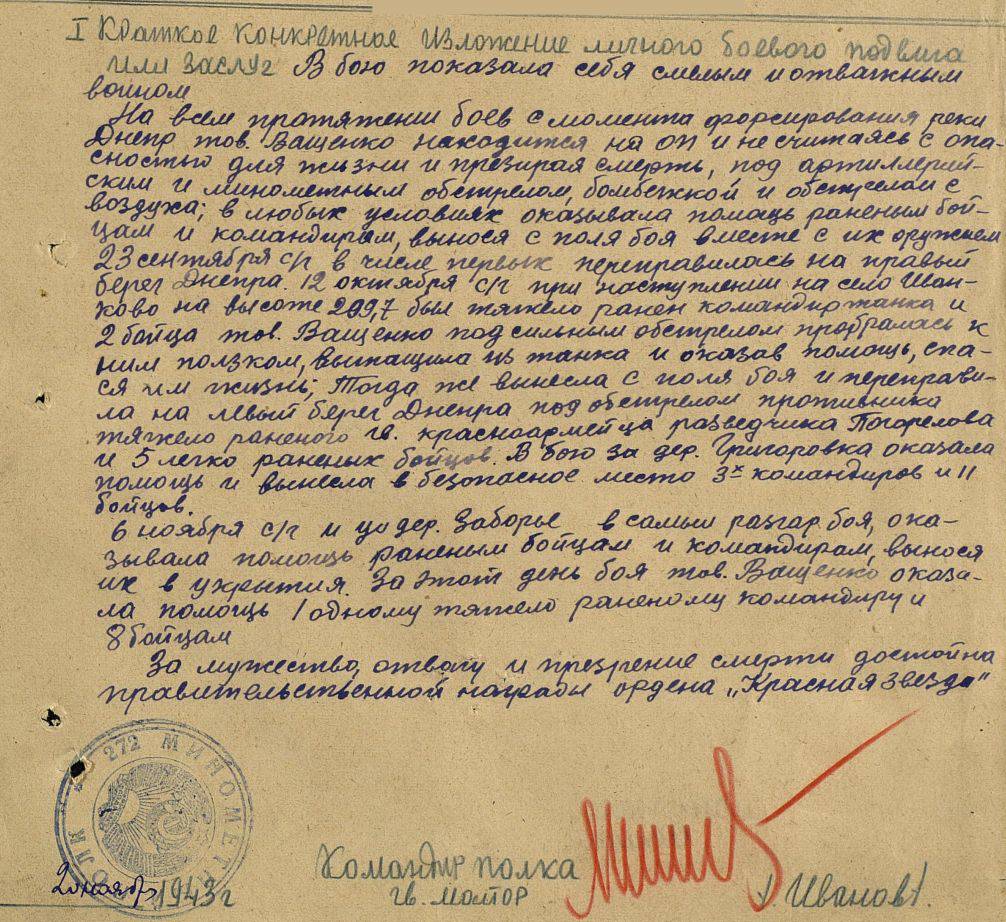 I Краткое конкретное изложение личного боевого подвига
или заслуг В бою показала себя смелым и отважным
воином
На всем протяжении боев с момента форсирования реки
Днепр тов. Ващенко находится на ОП и не считаясь с опа-
сностью для жизни и презирая смерть, под артиллерий-
ским и минометным обстрелом, бомбежкой и обстрелом с
воздуха; в любых условиях оказывала помощь раненым бой-
цам и командирам, вынося с поля боя вместе с их оружием
23 сентября с/г в числе первых переправилась на правый
берег Днепра. 12 октября с/г при наступлении на село Иван-
ково на высоте 209,7 был тяжело ранен командир танка и
2 бойца тов. Ващенко под сильным обстрелом пробралась к
ним ползком, вытащила из танка и оказав помощь, спа-
ся им жизнь; Тогда же вынесла с поля боя и переправи-
ла на левый берег Днепра под обстрелом противника
тяжело раненого гв. красноармейца разведчика Погорелова
и 5 легко раненых бойцов. В бою за дер. Григоровка оказала
помощь и вынесла в безопасное место 3х командиров и 11
бойцов.
6 ноября с/г дер. Заборье в самый разгар боя, ока-
зывала помощь раненым бойцам и командирам, вынося
их в укрытия. За этот день боя тов. Ващенко оказа-
ла помощь 1 одному тяжело раненому командиру и
8 бойцам
За мужество, отвагу и презрение смерти достойна
правительственной награды ордена „Красная звезда"
272 МИНОМЕТ
Командир полка
гв. майор
/Иванов/.
ноября 1943 г